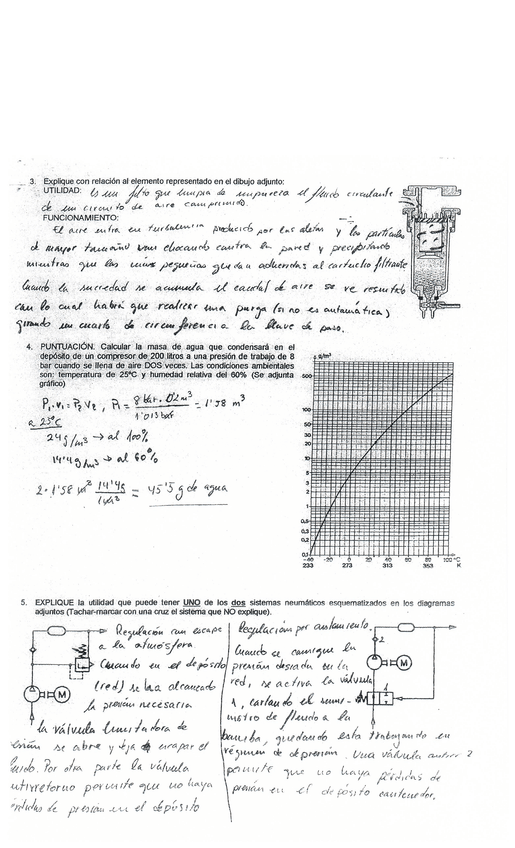 3. Explique con relación al elemento representado en el dibujo adjunto:
UTILIDAD: Es un filtro que limpia de impureza el fluido circulante
de un circuito de aire comprimido.
FUNCIONAMIENTO:
El aire entra en turbulencia producido por las aletas y las partículas
de mayor tamaño van chocando contra la pared y precipitando
mientras que las más pequeñas quedan adheridas al cartucho filtrante
Cuando la suciedad se acumula el caudal de aire se ve
con lo cual habrá que realizar una purga (si no es automática)
girando un cuarto de circunferencia la llave de paso.
4. PUNTUACIÓN. Calcular la masa de agua que condensará en el
depósito de un compresor de 200 litros a una presión de trabajo de 8
bar cuando se llena de aire DOS veces. Las condiciones ambientales
son: temperatura de 25ºC y humedad relativa del 60% (Se adjunta
gráfico)
P₁·V₁ = P₂ V₂ , P₁ = 8 bar · 0'2 m³ / 1'013 bar = 1'58 m³
a 25ºC
24 g/m³ → al 100%
14'4 g/m³ → al 60%
2 · 1'58 m³ 14'4g / 1 m³ = 45'5 g de agua
g/m³
500
100
50
30
20
10
5
3
2
1
0,5
0,3
0,2
0,1
-40 -20 0 20 40 60 80 100 °C
233 273 313 353 K
5. EXPLIQUE la utilidad que puede tener UNO de los dos sistemas neumáticos esquematizados en los diagramas
adjuntos (Tachar-marcar con una cruz el sistema que NO explique).
Regulación con escape
a la atmósfera
Cuando en el depósito
(red) se ha alcanzado
la presión necesaria
la válvula limitadora de
presión se abre y deja escapar el
fluido. Por otra parte la válvula
antirretorno permite que no haya
pérdidas de presión en el depósito
M
Regulación por aislamiento.
Cuando se consigue la
presión deseada en la
red, se activa la válvula
1, cortando el sumi-
nistro de fluido a la
bomba, quedando esta trabajando en
régimen de depresión. Una válvula 2
permite que no haya pérdidas de
presión en el depósito contenedor.
2
M
1